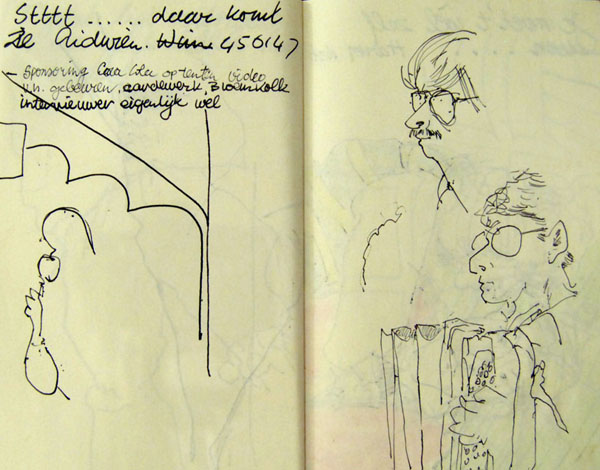 Stttt ...... daar komt
Ze Aidwien. Wim 456147
sponsoring Coca Cola op tenten video
v.h. gebeuren. aardewerk, Bloemkolk
interviewen eigenlijk wel